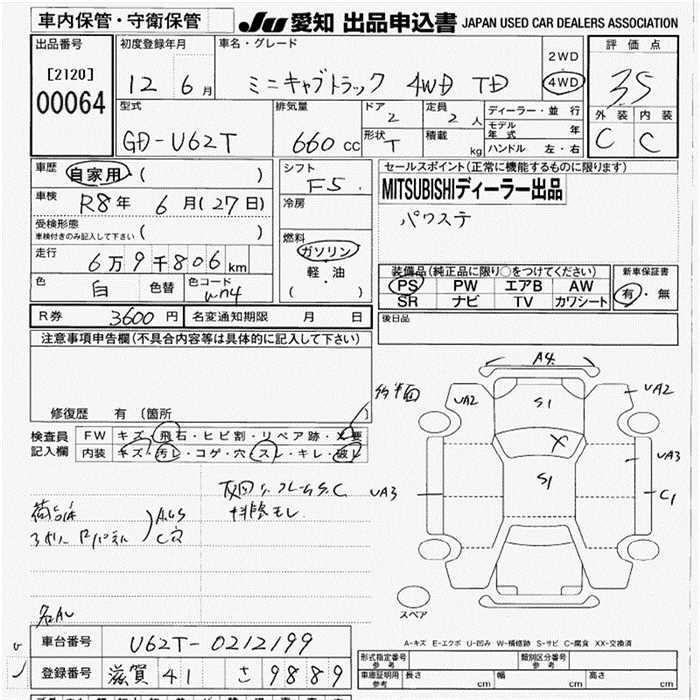 車内保管・守衛保管
JU 愛知 出品申込書 JAPAN USED CAR DEALERS ASSOCIATION
出品番号
[2120]
00064
初度登録年月
12 6月
車名・グレード
ミニキャブトラック 4WD TD
2WD
4WD
評価点
3.5
外装 内装
C C
型式
GD-U62T
排気量
660 cc
ドア
2
定員
2 人
形状
T
積載
kg
ディーラー・並行
モデル年式 年
ハンドル 左・右
車歴
自家用 ( )
車検
R8年 6月(27日)
受検形態
車検付きのみ記入して下さい ( )
走行
6万9千806km
色
白
色替
色コード
シフト
F5
冷房
燃料
ガソリン
軽・油
( )
セールスポイント(正常に機能するものに限ります)
MITSUBISHIディーラー出品
パワステ
装備品(純正品に限り○をつけてください)
PS PW エアB AW
SR ナビ TV カワシート
新車保証書
有・無
R券 3600円
名変通知期限 月 日
後日品
注意事項申告欄(不具合内容等は具体的に記入して下さい)
修復歴 有 (箇所 )
検査員記入欄
FW キズ・飛石・ヒビ割・リペア跡・X要
内装 キズ・汚レ・コゲ・穴・スレ・キレ・破レ
A4
UA2
S1
UA2
X
S1
UA3
UA3
C1
スペア
A-キズ E-エクボ U-凹み W-補修跡 S-サビ C-腐食 XX-交換済
車台番号
U62T-0212199
登録番号
滋賀 41 さ 9889
形式指定番号 参考
類別区分番号 参考
車庫証明用 参考
長さ cm
幅 cm
高さ cm